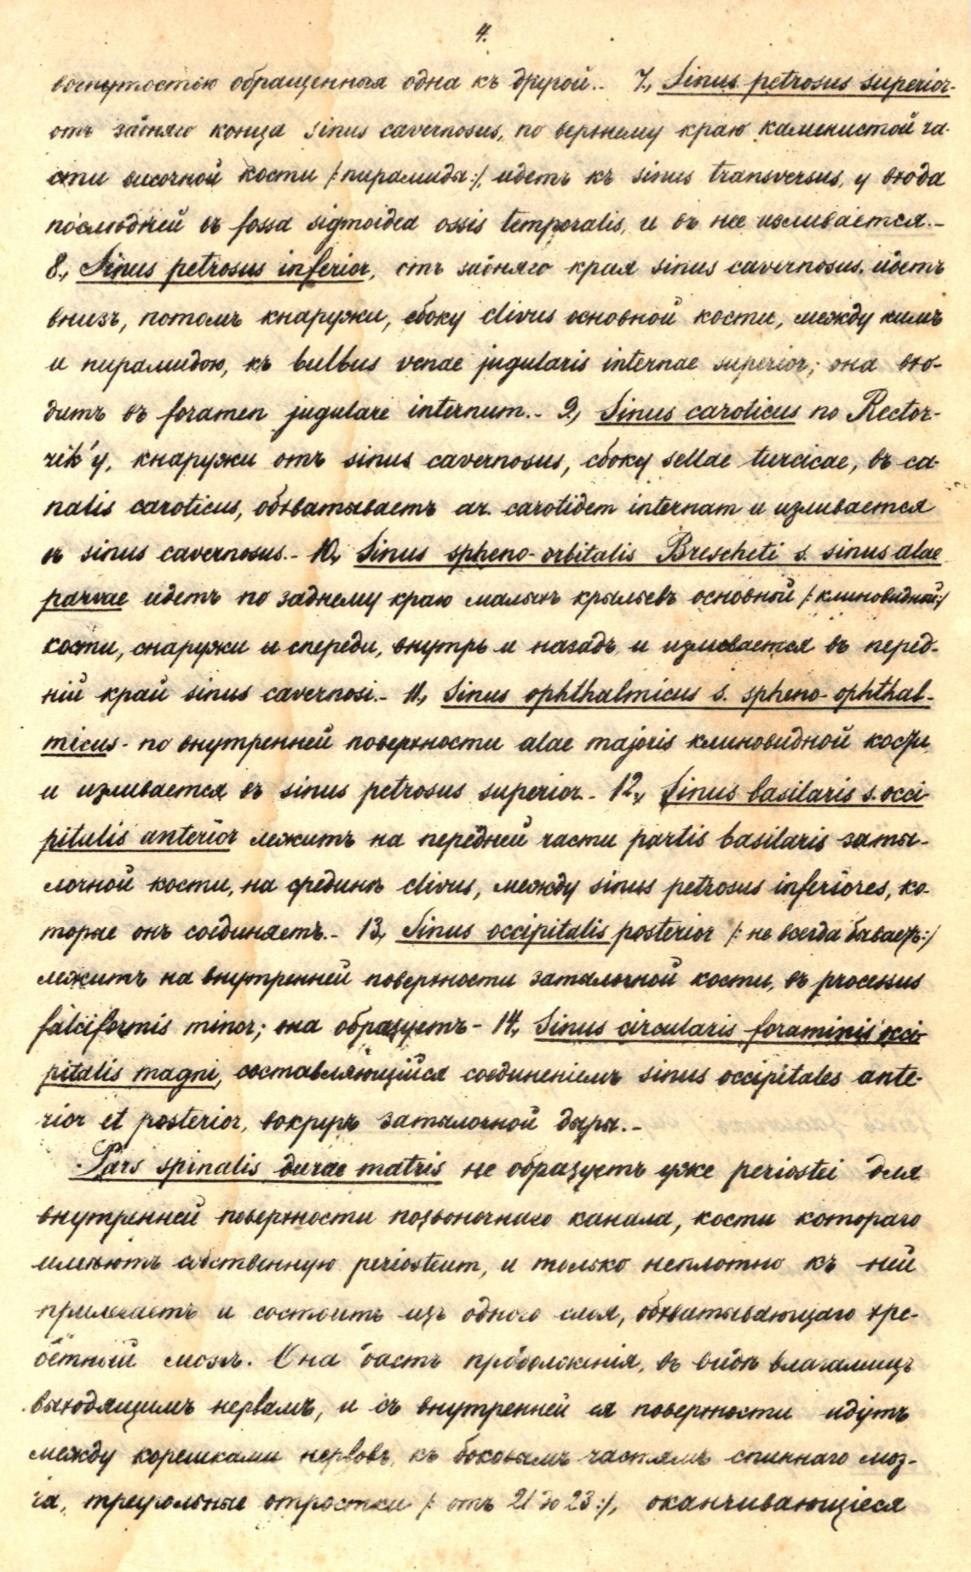 4.
вогнутостью обращенныя одна къ другой.- 7., Sinus petrosus superior-
отъ задняго конца sinus cavernosus, по верхнему краю каменистой ча-
сти височной кости /:пирамида:/, идетъ къ sinus transversus, у входа
послѣдней въ fossa sigmoidea ossis temporalis, и въ нее изливается.-
8., Sinus petrosus inferior, отъ задняго края sinus cavernosus, идетъ
внизъ, потомъ кнаружи, сбоку clivus основной кости, между нимъ
и пирамидою, къ bulbus venae jugularis internae superior; она вхо-
дитъ въ foramen jugulare internum.- 9., Sinus caroticus по Rector-
zik'у, кнаружи отъ sinus cavernosus, сбоку sellae turcicae, въ ca-
nalis caroticus, обхватываетъ ar. carotidem internam и изливается
въ sinus cavernosus.- 10., Sinus spheno-orbitalis Brescheti s. sinus alae
parvae идетъ по заднему краю малыхъ крыльевъ основной /:клиновидной:/
кости, снаружи и спереди, внутрь и назадъ и изливается въ перед-
ній край sinus cavernosi.- 11., Sinus ophthalmicus s. spheno-ophthal-
micus- по внутренней поверхности alae majoris клиновидной кости,
и изливается въ sinus petrosus superior.- 12., Sinus basilaris s. occi-
pitalis anterior лежитъ на передней части partis basilaris заты-
лочной кости, на срединѣ clivus, между sinus petrosus inferiores, ко-
торые онъ соединяетъ.- 13., Sinus occipitalis posterior /:не всегда бываетъ:/
лежитъ на внутренней поверхности затылочной кости, въ processus
falciformis minor; она образуетъ- 14., Sinus circularis foraminis occi-
pitalis magni, составляющійся соединеніемъ sinus occipitales ante-
rior et posterior, вокругъ затылочной дыры.-
Pars spinalis durae matris не образуетъ уже periostei для
внутренней поверхности позвоночнаго канала, кости котораго
имѣютъ собственную periosteum, и только неплотно къ ней
прилегаетъ и состоитъ изъ одного слоя, обхватывающаго хре-
бетный мозгъ. Она даетъ продолженія, въ видѣ влагалищъ
выходящимъ нервамъ, и съ внутренней ея поверхности идутъ
между корешками нервовъ, къ боковымъ частямъ спиннаго моз-
га, треугольные отростки /:отъ 21 до 23:/, оканчивающіеся